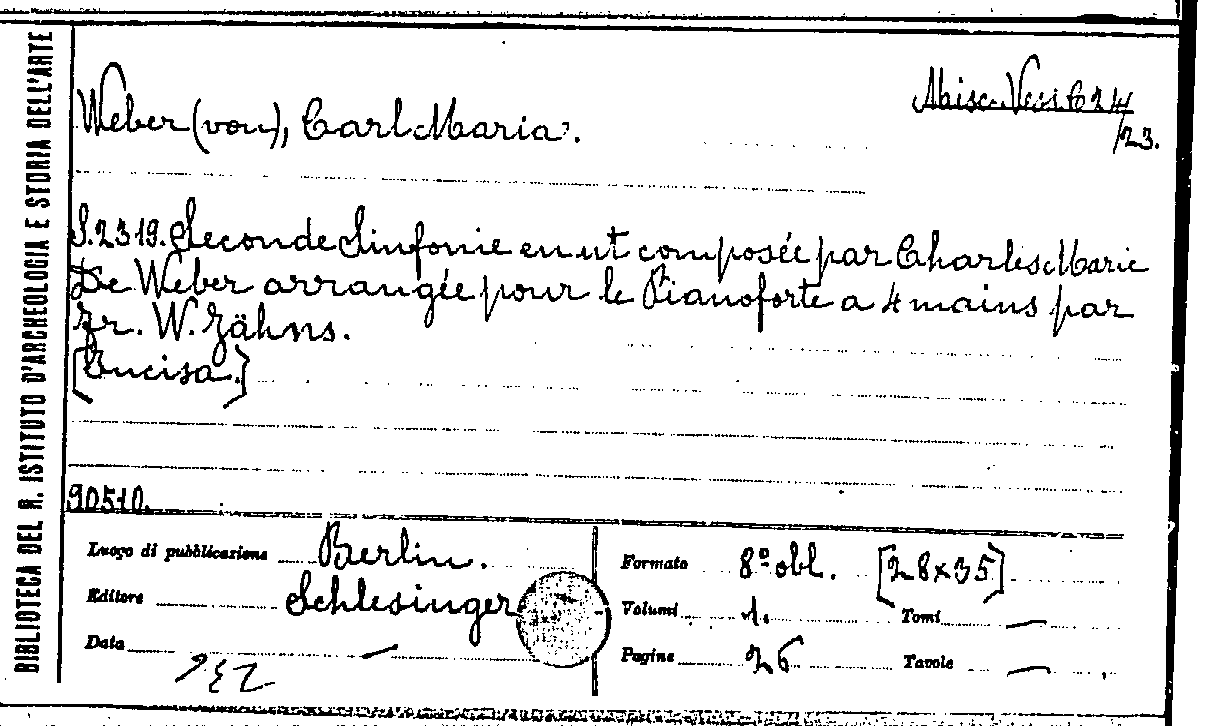 BIBLIOTECA DEL R. ISTITUTO D'ARCHEOLOGIA E STORIA DELL'ARTE
Misc. Vess. C 24/23.
Weber (von), Carl Maria.
S.2319. Seconde Sinfonie en ut composée par Charles Marie
De Weber arrangée pour le Pianoforte a 4 mains par
Fr. W. Jähns.
[Incisa.]
90510.
Luogo di pubblicazione Berlin.
Editore Schlesinger
Data —
Formato 8º obl. [28x35]
Volumi 1. Tomi —
Pagine 26 Tavole —